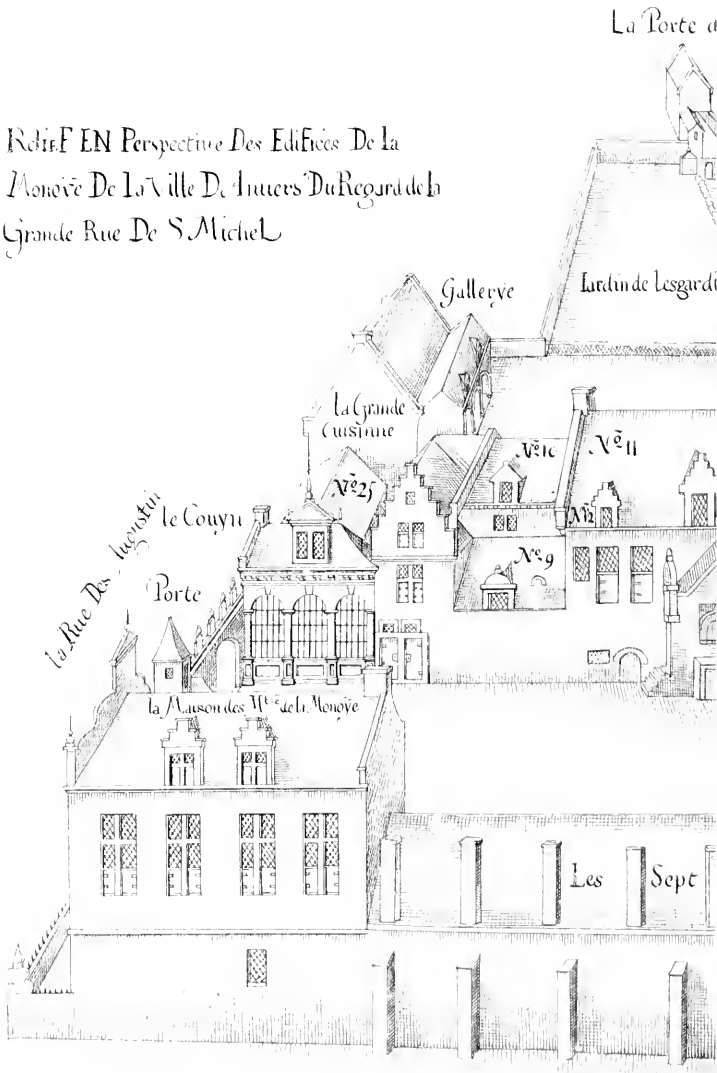 La Porte d
Relief EN Perspective Des Edifices De la
Monoye De La Ville D'Anuers Du Regard de la
Grande Rue De S Michel
Gallerye
Iardin de Lesgardi
la Grande
Cuisinne
Nº 10
Nº 11
Nº 25
Nº 12
le Couyn
Nº 9
la Rue Des Augustin
Porte
la Maison des Mtre de la Monoye
Les Sept